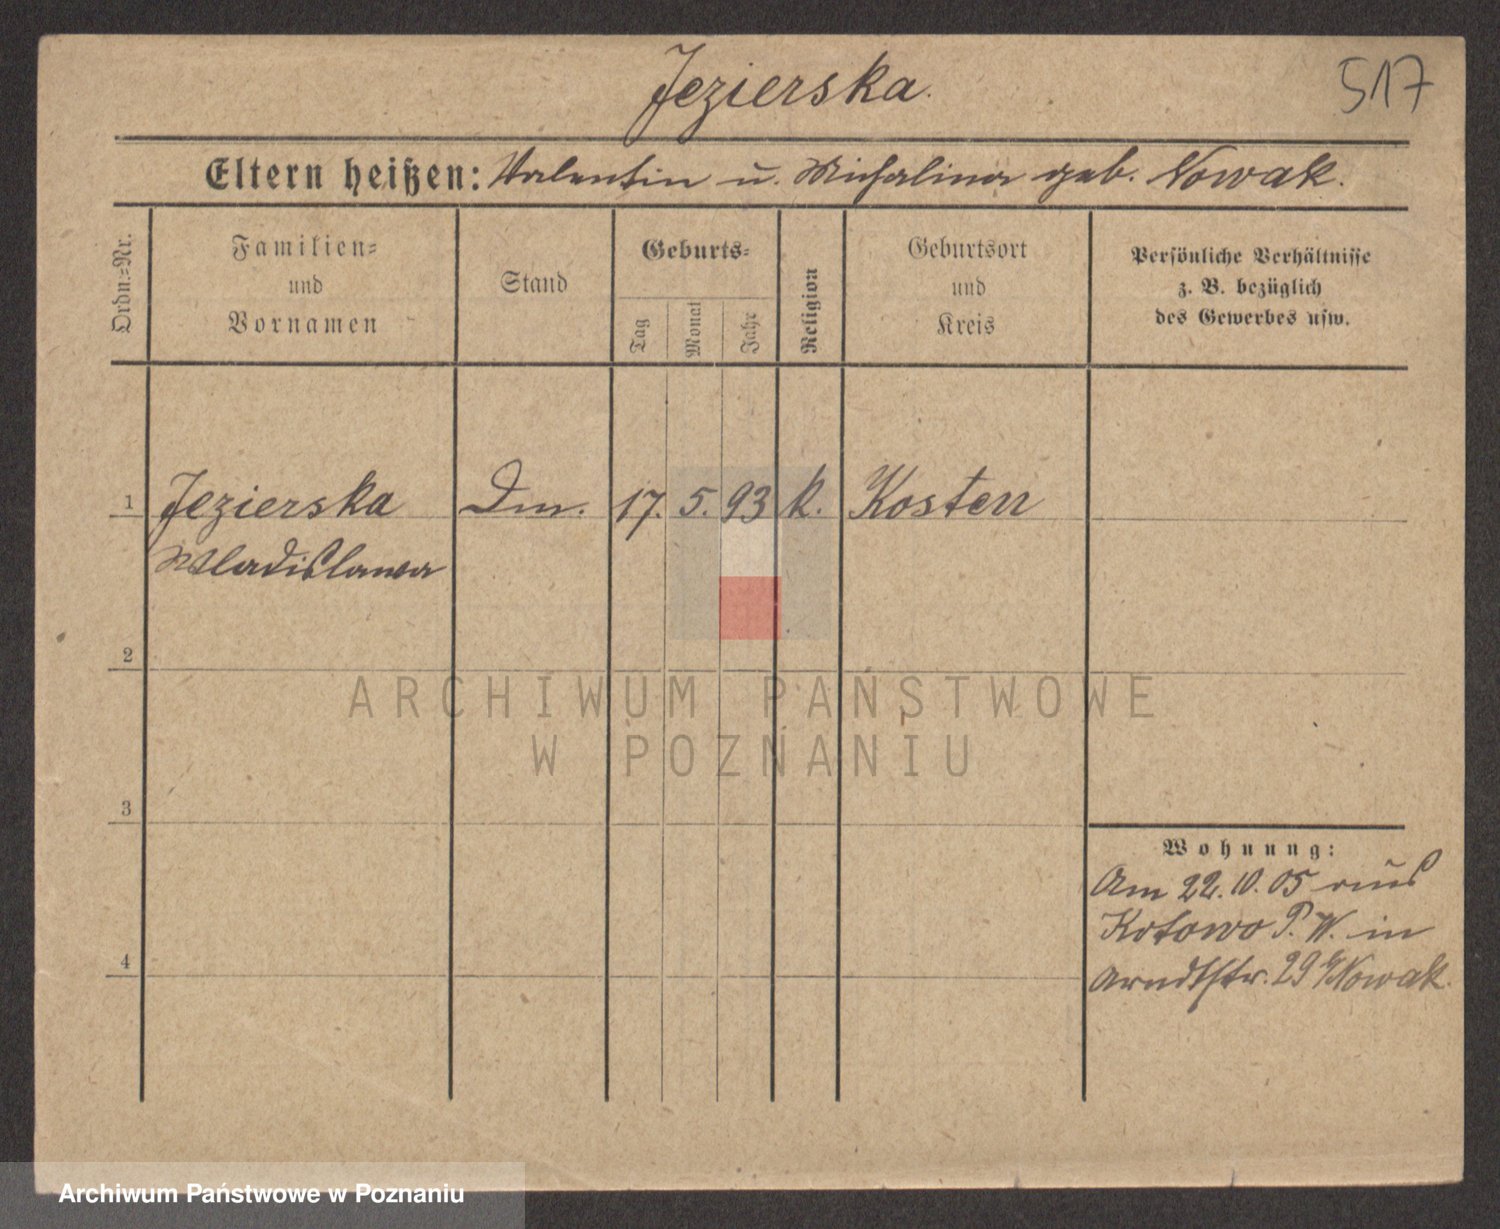 Jezierska.
517
Eltern heißen: Valentin u. Michalina geb. Nowak.
Ordn.=Nr.
Familien=
und
Vornamen
Stand
Geburts=
Tag
Monat
Jahr
Religion
Geburtsort
und
Kreis
Persönliche Verhältnisse
z. B. bezüglich
des Gewerbes usw.
1 Jezierska 17. 5. 93 k. Kosten
Wladislawa
2
ARCHIWUM PAŃSTWOWE
W POZNANIU
3
Wohnung:
Am 22.10.05 aus
Kotowo P. W. in
Arndtstr. 29 Nowak.
4
Archiwum Państwowe w Poznaniu